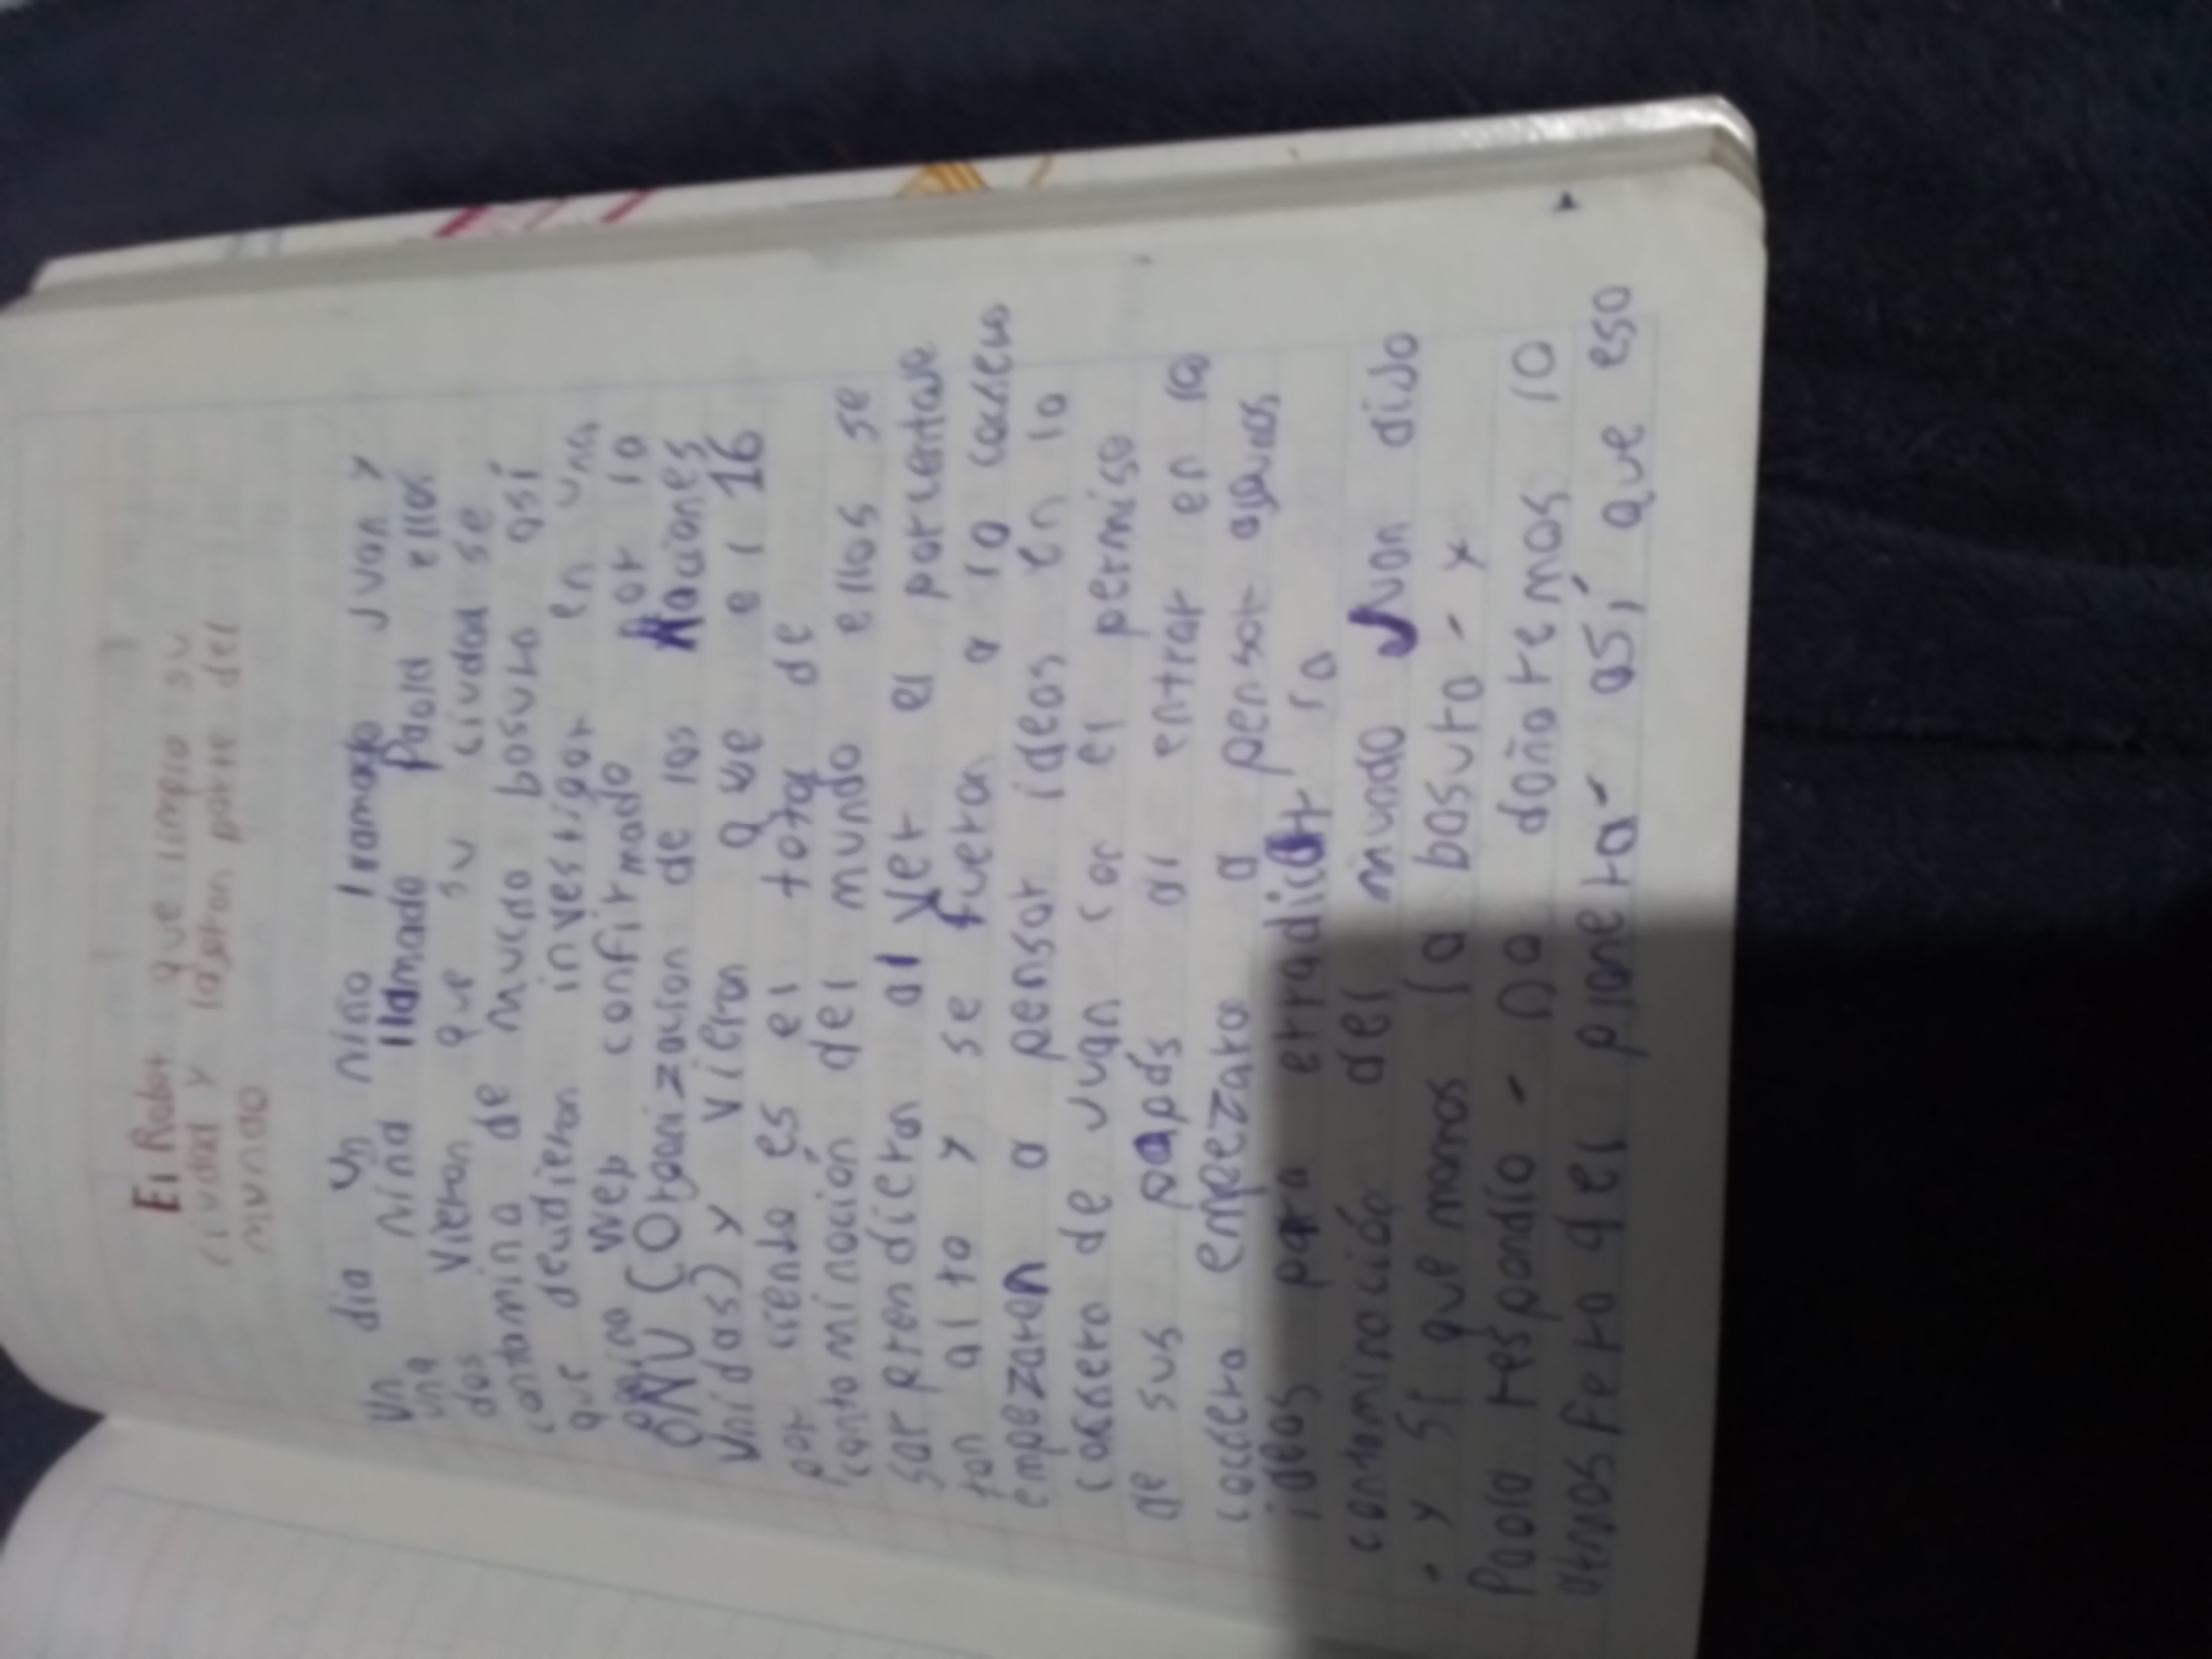 El Robot que limpio su
ciudad y la gran parte del
mundo
Un dia un niño llamado Juan y
una niña llamado Paola ellos
dos vieron que su ciudad se
contamina de mucha basura asi
que decidieron investigar en una
pagina wep confirmado Por la
ONU (Organizacion de las Naciones
Unidas) y vieron que el 16
por ciento es el total de
contaminación del mundo ellos se
sorprendieron al ver el porcentaje
tan alto y se fueron a la cochera
empezaron a pensar ideas en la
cochera de Juan con el permiso
de sus papás al entrar en la
cochera empezaro a pensar algunas
ideas para erradicar la
contaminación del mundo Juan dijo
- y si quemamos la basura - y
Paola respondio - no dañaremos la
atmosfera del planeta - así que eso